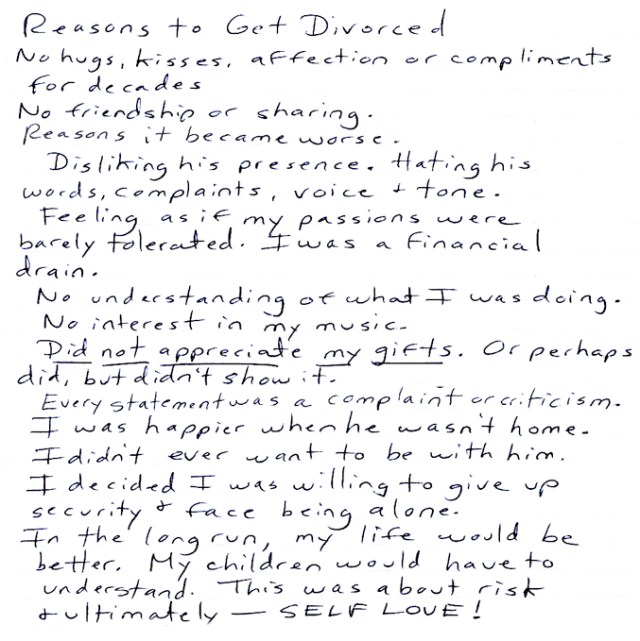 Reasons to Get Divorced
No hugs, kisses, affection or compliments
for decades
No friendship or sharing.
Reasons it became worse.
Disliking his presence. Hating his
words, complaints, voice + tone.
Feeling as if my passions were
barely tolerated. I was a financial
drain.
No understanding of what I was doing.
No interest in my music.
Did not appreciate my gifts. Or perhaps
did, but didn't show it.
Every statement was a complaint or criticism.
I was happier when he wasn't home.
I didn't ever want to be with him.
I decided I was willing to give up
security + face being alone.
In the long run, my life would be
better. My children would have to
understand. This was about risk
+ ultimately — SELF LOVE!